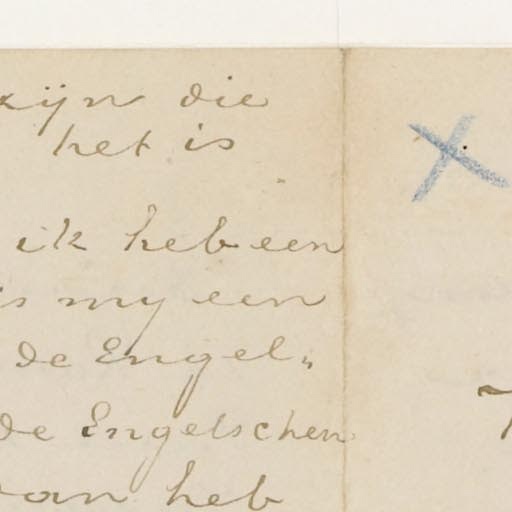 zijn die
het is
ik heb een
is my een
de Engel„
de Engelschen
van heb